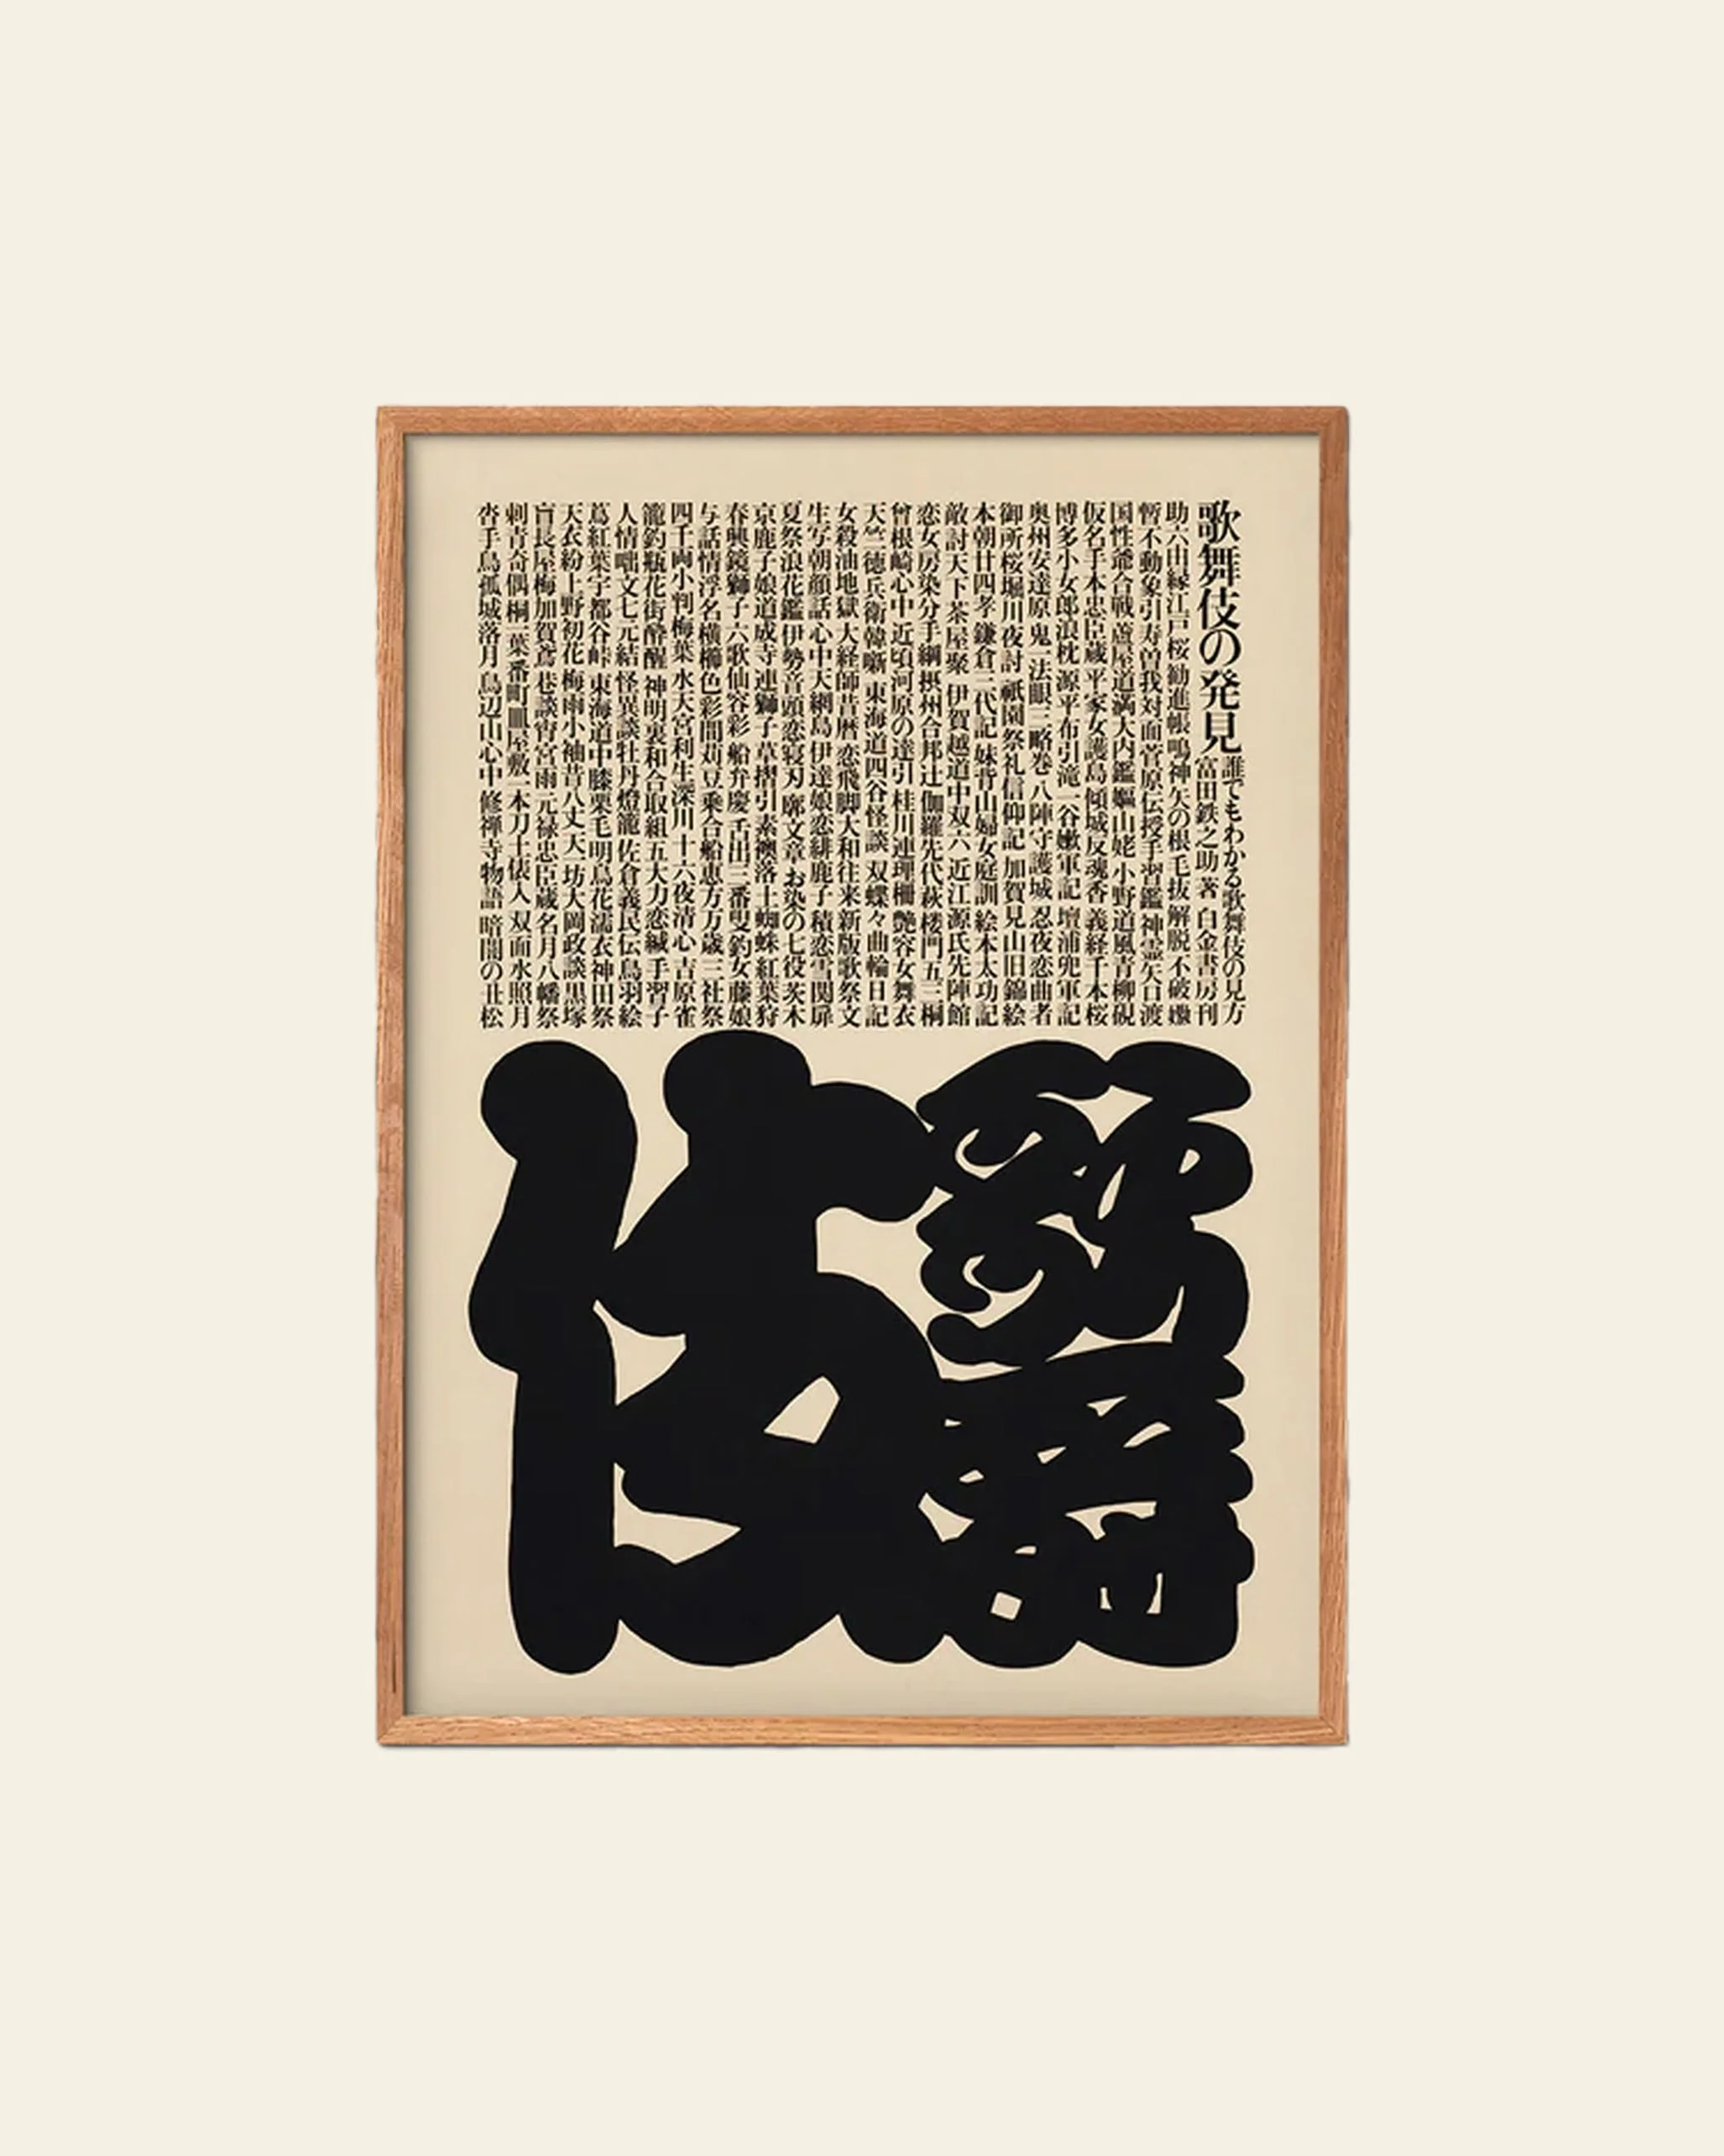 歌舞伎の発見
誰でもわかる歌舞伎の見方
富田鉄之助 著 白金書房刊
助六由縁江戸桜 勧進帳 鳴神 矢の根 毛抜 解脱 不破 嫐
暫 不動 象引 寿曽我対面 菅原伝授手習鑑 神霊矢口渡
国性爺合戦 蘆屋道満大内鑑 嫗山姥 小野道風青柳硯
仮名手本忠臣蔵 平家女護島 傾城反魂香 義経千本桜
博多小女郎浪枕 源平布引滝 一谷嫩軍記 壇浦兜軍記
奥州安達原 鬼一法眼三略巻 八陣守護城 忍夜恋曲者
御所桜堀川夜討 祇園祭礼信仰記 加賀見山旧錦絵
本朝廿四孝 鎌倉三代記 妹背山婦女庭訓 絵本太功記
敵討天下茶屋聚 伊賀越道中双六 近江源氏先陣館
恋女房染分手綱 摂州合邦辻 伽羅先代萩 楼門五三桐
曾根崎心中 近頃河原の達引 桂川連理柵 艶容女舞衣
天竺徳兵衛韓噺 東海道四谷怪談 双蝶々曲輪日記
女殺油地獄 大経師昔暦 恋飛脚大和往来 新版歌祭文
生写朝顔話 心中天網島 伊達娘恋緋鹿子 積恋雪関扉
夏祭浪花鑑 伊勢音頭恋寝刃 廓文章 お染の七役 茨木
京鹿子娘道成寺 連獅子 草摺引 素襖落 土蜘蛛 紅葉狩
春興鏡獅子 六歌仙容彩 船弁慶 舌出三番叟 釣女 藤娘
与話情浮名横櫛 色彩間苅豆 乗合船恵方万歳 三社祭
四千両小判梅葉 水天宮利生深川 十六夜清心 吉原雀
籠釣瓶花街酔醒 神明恵和合取組 五大力恋緘 手習子
人情噺文七元結 怪異談牡丹燈籠 佐倉義民伝 鳥羽絵
蔦紅葉宇都谷峠 東海道中膝栗毛 明烏花濡衣 神田祭
天衣紛上野初花 梅雨小袖昔八丈 天一坊大岡政談 黒塚
盲長屋梅加賀鳶 巷談宵宮雨 元禄忠臣蔵 名月八幡祭
刺青奇偶 桐一葉 番町皿屋敷 一本刀土俵入 双面水照月
沓手鳥孤城落月 鳥辺山心中 修禅寺物語 暗闇の丑松
歌舞伎